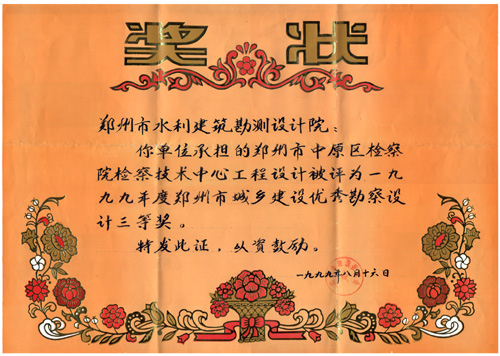 奖 状
郑州市水利建筑勘测设计院：
你单位承担的郑州市中原区检察
院检察技术中心工程设计被评为一九
九九年度郑州市城乡建设优秀勘察设
计三等奖。
特发此证，以资鼓励。
一九九九年八月十六日